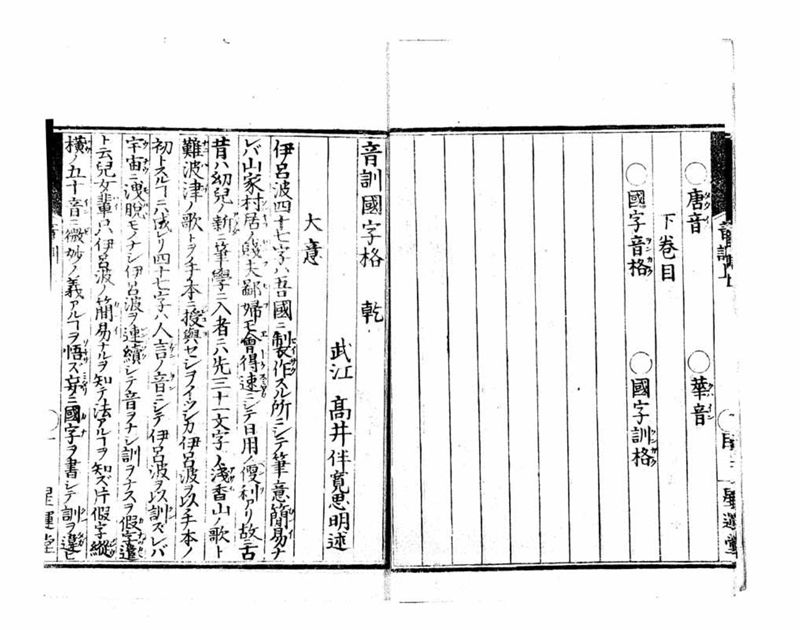 ○唐音 ○華音
下卷目
○國字音格 ○國字訓格
音訓國字格 乾
武江 髙井伴寬思明述
大意
伊呂波四十七字ハ吾國ニ制作スル所ニシテ筆意簡易ナ
レバ山家村居ノ賤夫鄙婦モ會得速ニシテ日用ノ便利アリ故ニ古
昔ハ幼兒ノ新ニ筆學ニ入者ニハ先三十一文字ノ淺香山ノ歌ト
難波津ノ歌トヲ手本ニ授與セシヲイツシカ伊呂波ヲ以手本ノ
初トスルヿニハ成レリ四十七字ハ人言ノ音ニシテ伊呂波ヲ以訓ズレバ
宇宙ニ洩脫モノナシ伊呂波ヲ連續シテ音ヲナシ訓ヲナスヲ假字遣
ト云兒女輩只伊呂波ノ簡易ナルヲ知テ法アルヿヲ知ズ片假字縱
橫ノ五十音ニ微妙ノ義アルヿヲ悟ズ妄ニ國字ヲ書シテ訓ヲ違ヒ
星運堂